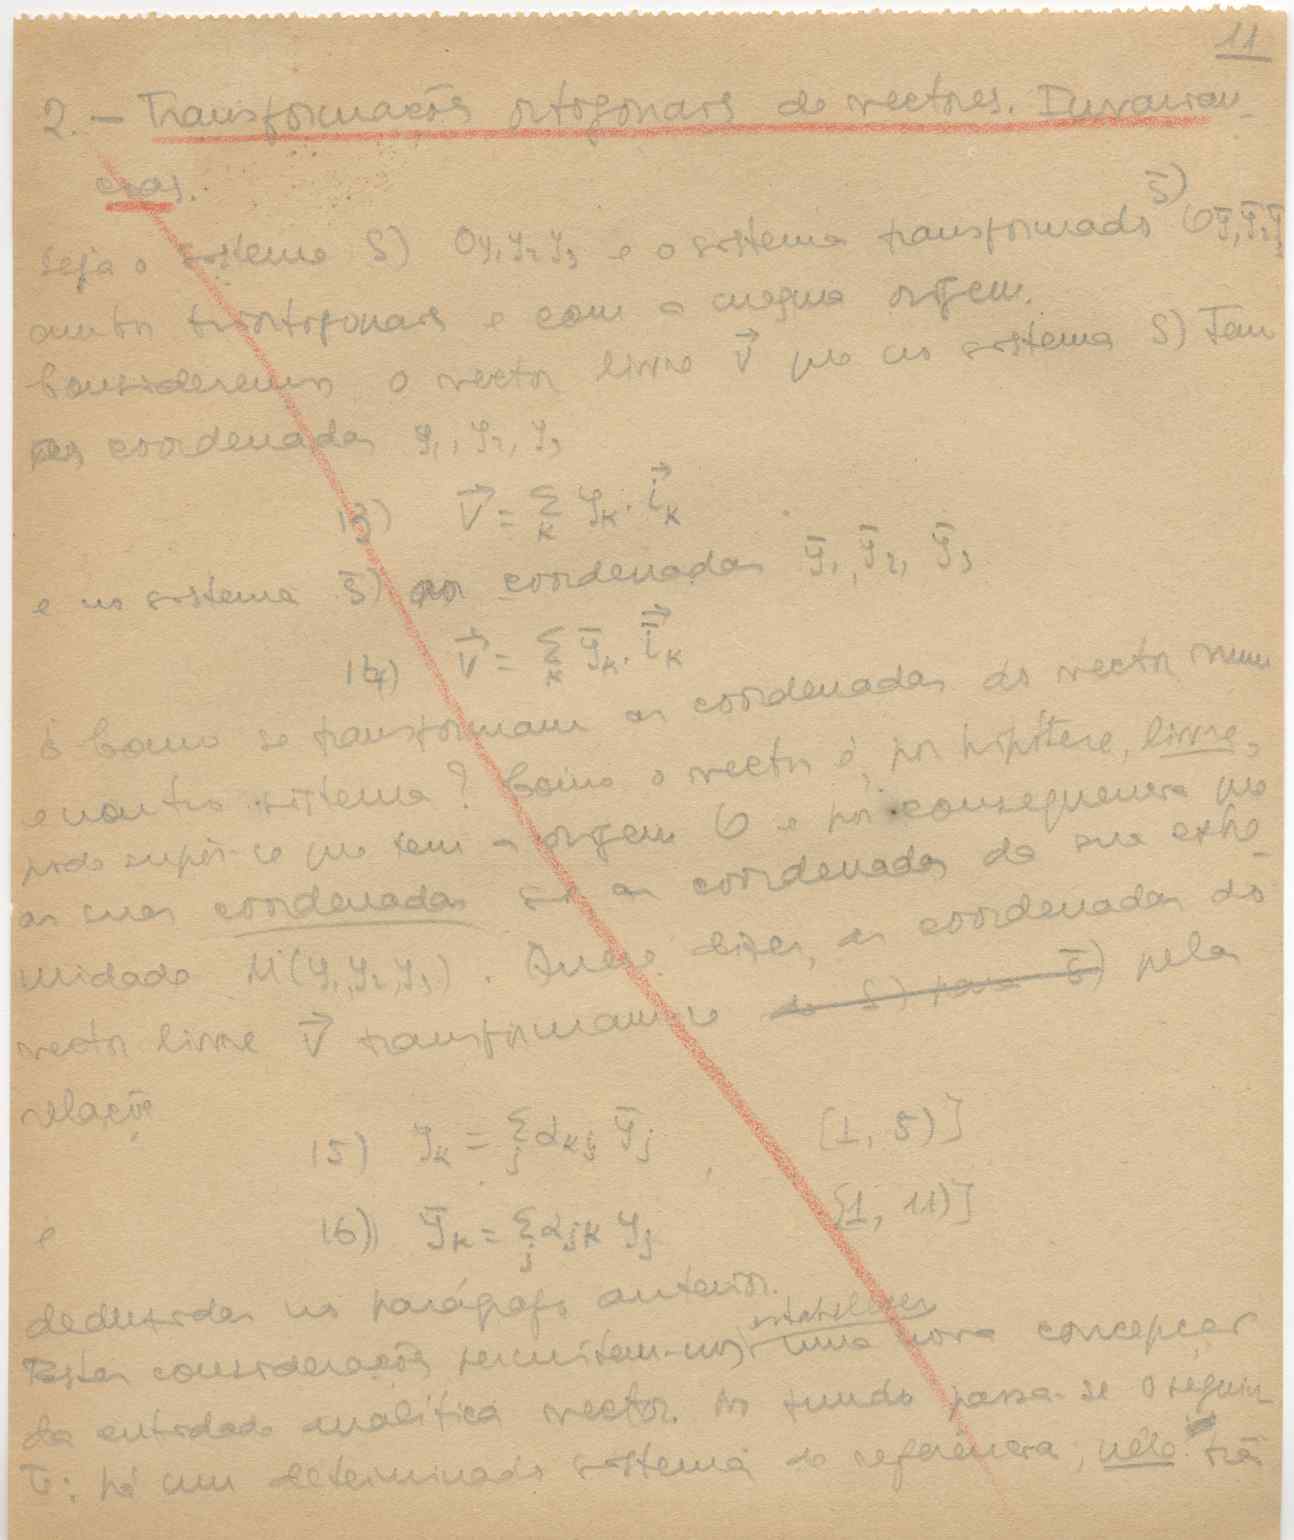 11
2. — Transformações ortogonais de vectores. Invarian-
cias.
Seja o sistema S) Oy₁y₂y₃ e o sistema transformado S̄) Oȳ₁ȳ₂ȳ₃
ambos triortogonais e com a mesma origem.
Consideremos o vector livre v⃗ que no sistema S) tem
as coordenadas y₁, y₂, y₃
13) v⃗ = Σₖ yₖ · i⃗ₖ
e no sistema S̄) as coordenadas ȳ₁, ȳ₂, ȳ₃
14) v⃗ = Σₖ ȳₖ · i̅⃗ₖ
Como se transformam as coordenadas do vector num
e noutro sistema? Como o vector é, por hipótese, livre,
pode supôr-se que tem a origem O e por consequencia que
as suas coordenadas são as coordenadas da sua extre-
midade M(y₁,y₂,y₃). Quere dizer, as coordenadas do
vector livre v⃗ transformam-se de S) para S̄) pelas
relações
15) yₖ = Σⱼ αₖⱼ ȳⱼ , [1, 5)]
e 16) ȳₖ = Σⱼ αⱼₖ yⱼ [1, 11)]
deduzidas no parágrafo anterior.
Estas considerações permitem-nos estabelecer uma nova concepção
da entidade analítica vector. No fundo passa-se o seguin-
te: há um determinado sistema de referência; nele